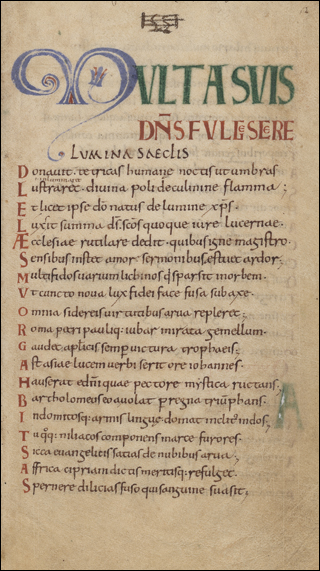 MULTA SUIS
DN̄S FULGESCERE
LUMINA SAECLIS
Donauit. tetricas humane noctis ut umbras
Lustraret diuina poli de culmine flamma;
Et licet ipse dō natus de lumine xp̄s
Lux sit summa. ds̄. scōs quoque iure lucernae.
Æcclesiae rutilare dedit. quibus igne magistro.
Sensibus instet amor. sermonibus estuet ardor;
Multifidos uarium lichinos qui sparsit in orbem.
Ut cuncto noua lux fidei face fusa sub axe.
Omnia sidereis uirtutibus arua repleret.
Roma petri pauliq; iubar mirata gemellum.
Gaudet aplicis semp uictura trophaeis;
Ast asiae lucem uerbi serit ore iohannes.
Hauserat e dn̄i quae pectore mystica ructans.
Bartholomeus eo auolat p regna triūphans.
Indomitosq; armis lingue domat inclite indos;
Tuq;q; niliacos componens marce furores.
Sicca euangelicis satias de nubibus arua;
Affrica cipriani dictis meritisq; refulget.
Spernere dilicias fuso qui sanguine suasit;